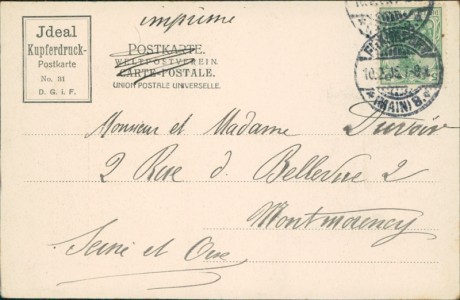 imprimé
Jdeal
Kupferdruck-
Postkarte
No. 31
D. G. i. F.
POSTKARTE.
WELTPOSTVEREIN.
CARTE-POSTALE.
UNION POSTALE UNIVERSELLE.
(MAIN)
Monsieur et Madame Duvoir
2 Rue d. Bellevue 2
Montmorency
Seine et Oise